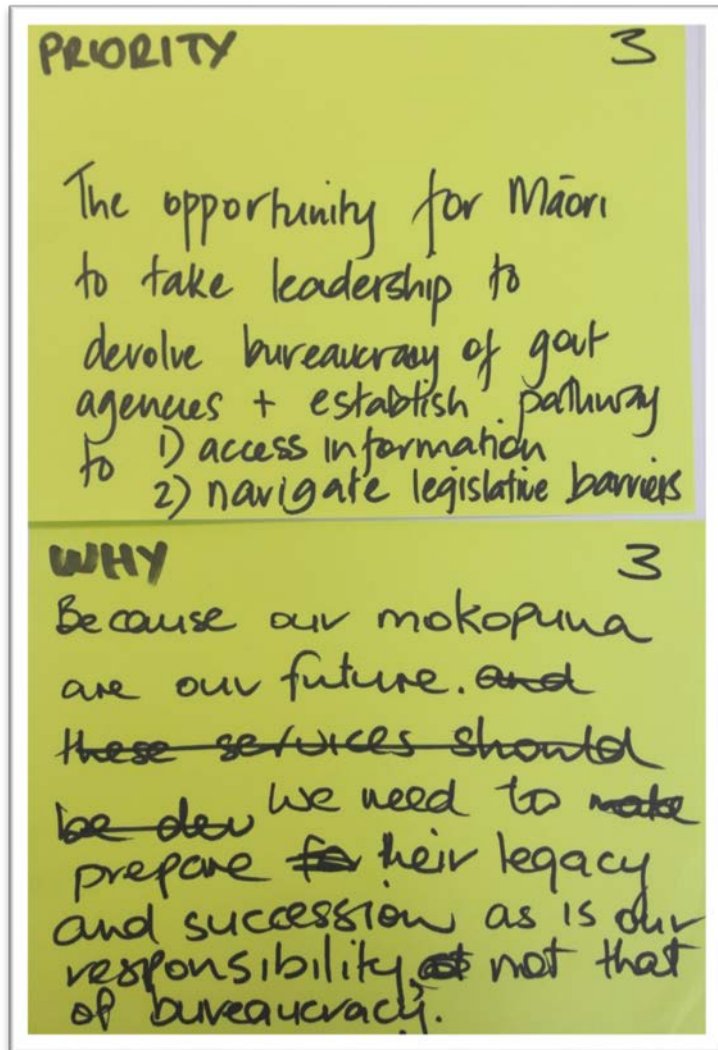 PRIORITY 3
The opportunity for Māori
to take leadership to
devolve bureaucracy of govt
agencies + establish pathway
to 1) access information
2) navigate legislative barriers
WHY 3
Because our mokopuna
are our future. and
these services should
be dev We need to make
prepare for their legacy
and succession as is our
responsibility, not that
of bureaucracy.